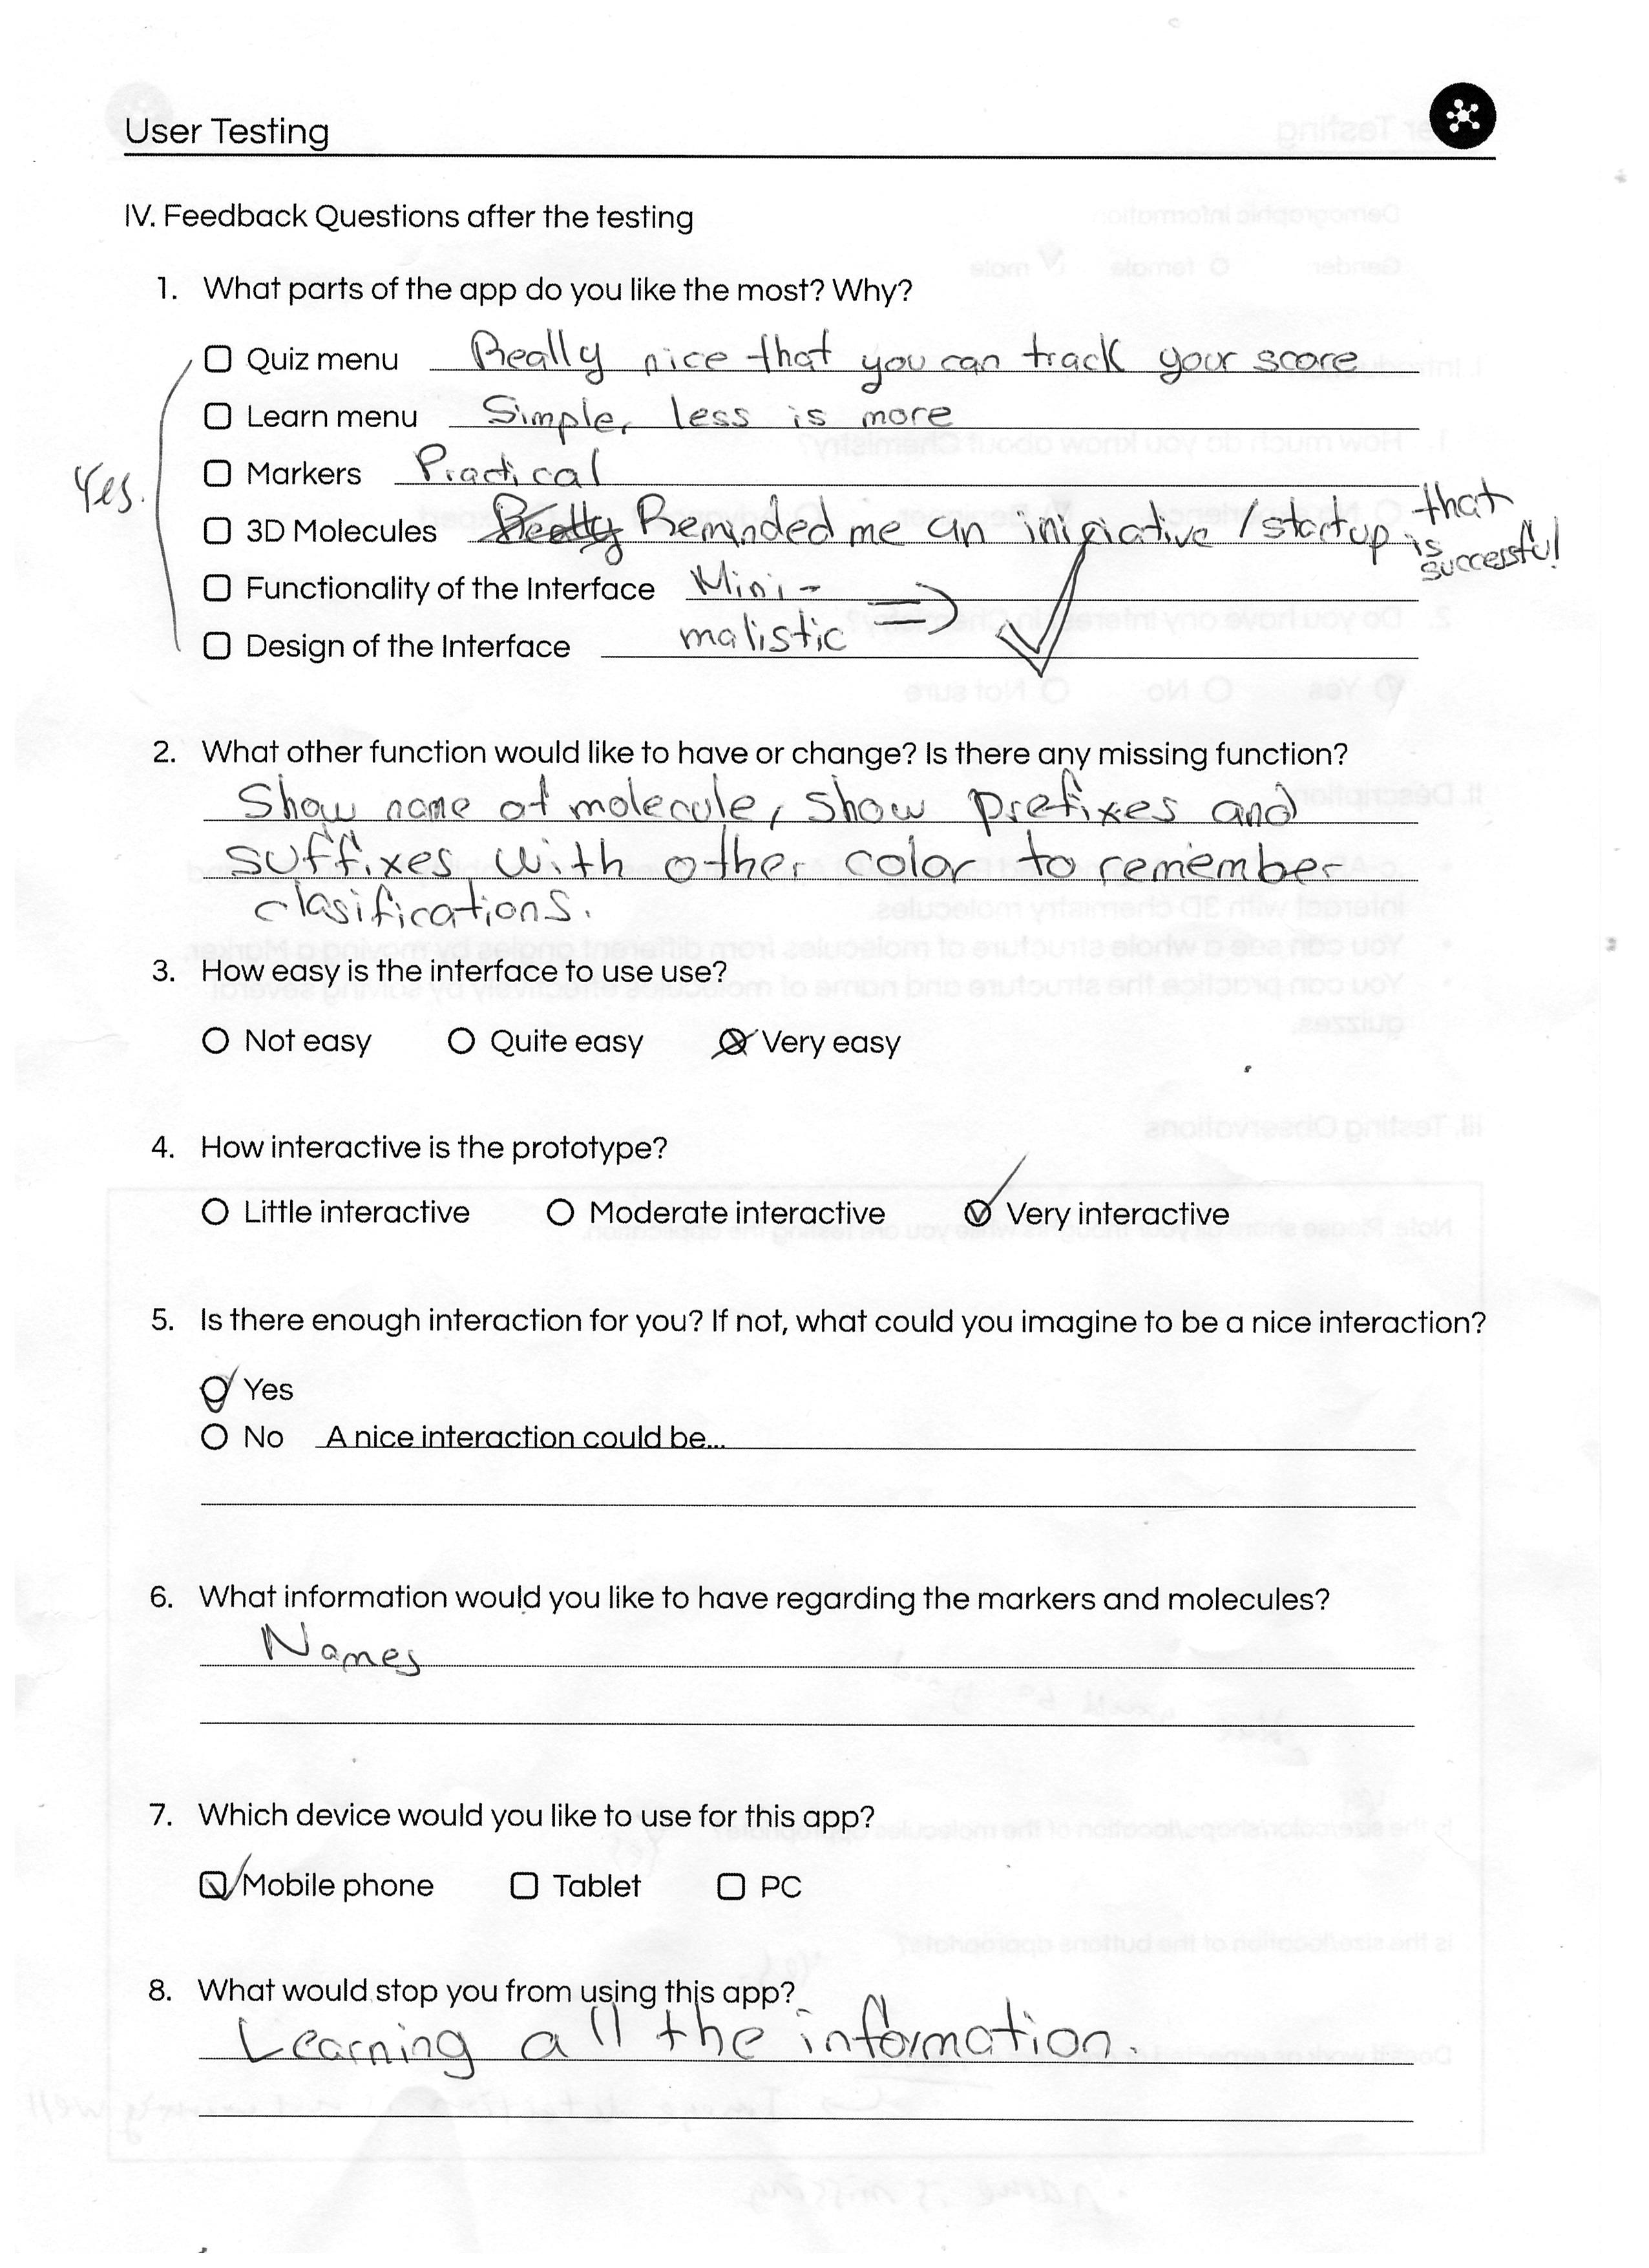 User Testing
IV. Feedback Questions after the testing
1. What parts of the app do you like the most? Why?
Quiz menu Really nice that you can track your score
Learn menu Simple, less is more
Markers Practical
Yes.
3D Molecules Reminded me an iniciative / startup that is successful
Functionality of the Interface Mini-
Design of the Interface malistic =>
2. What other function would like to have or change? Is there any missing function?
Show name of molecule, show prefixes and
suffixes with other color to remember
clasifications.
3. How easy is the interface to use use?
Not easy Quite easy Very easy
4. How interactive is the prototype?
Little interactive Moderate interactive Very interactive
5. Is there enough interaction for you? If not, what could you imagine to be a nice interaction?
Yes
No A nice interaction could be...
6. What information would you like to have regarding the markers and molecules?
Names
7. Which device would you like to use for this app?
Mobile phone Tablet PC
8. What would stop you from using this app?
Learning all the information.